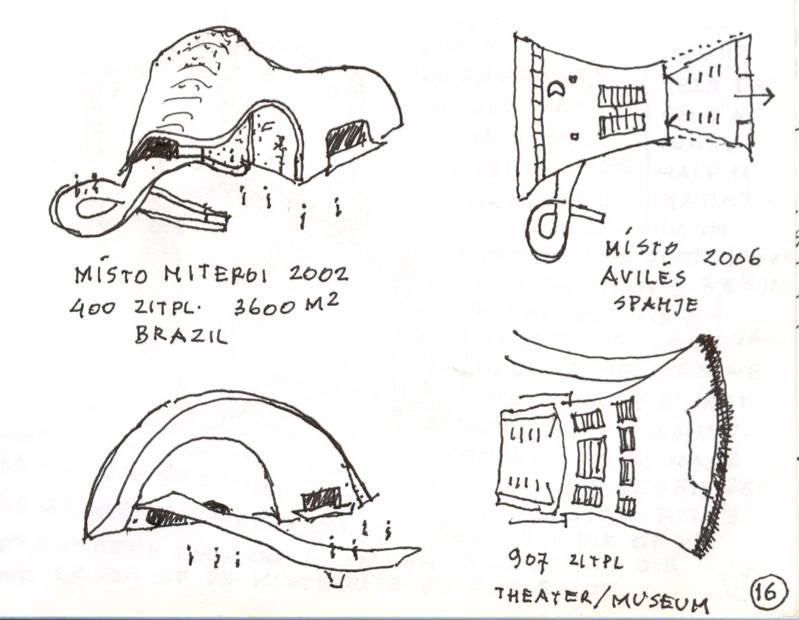 MÍSTO NITEROI 2002
400 ZITPL. 3600 M2
BRAZIL
MÍSTO 2006
AVILÉS
SPANJE
907 ZITPL
THEATER/MUSEUM
16